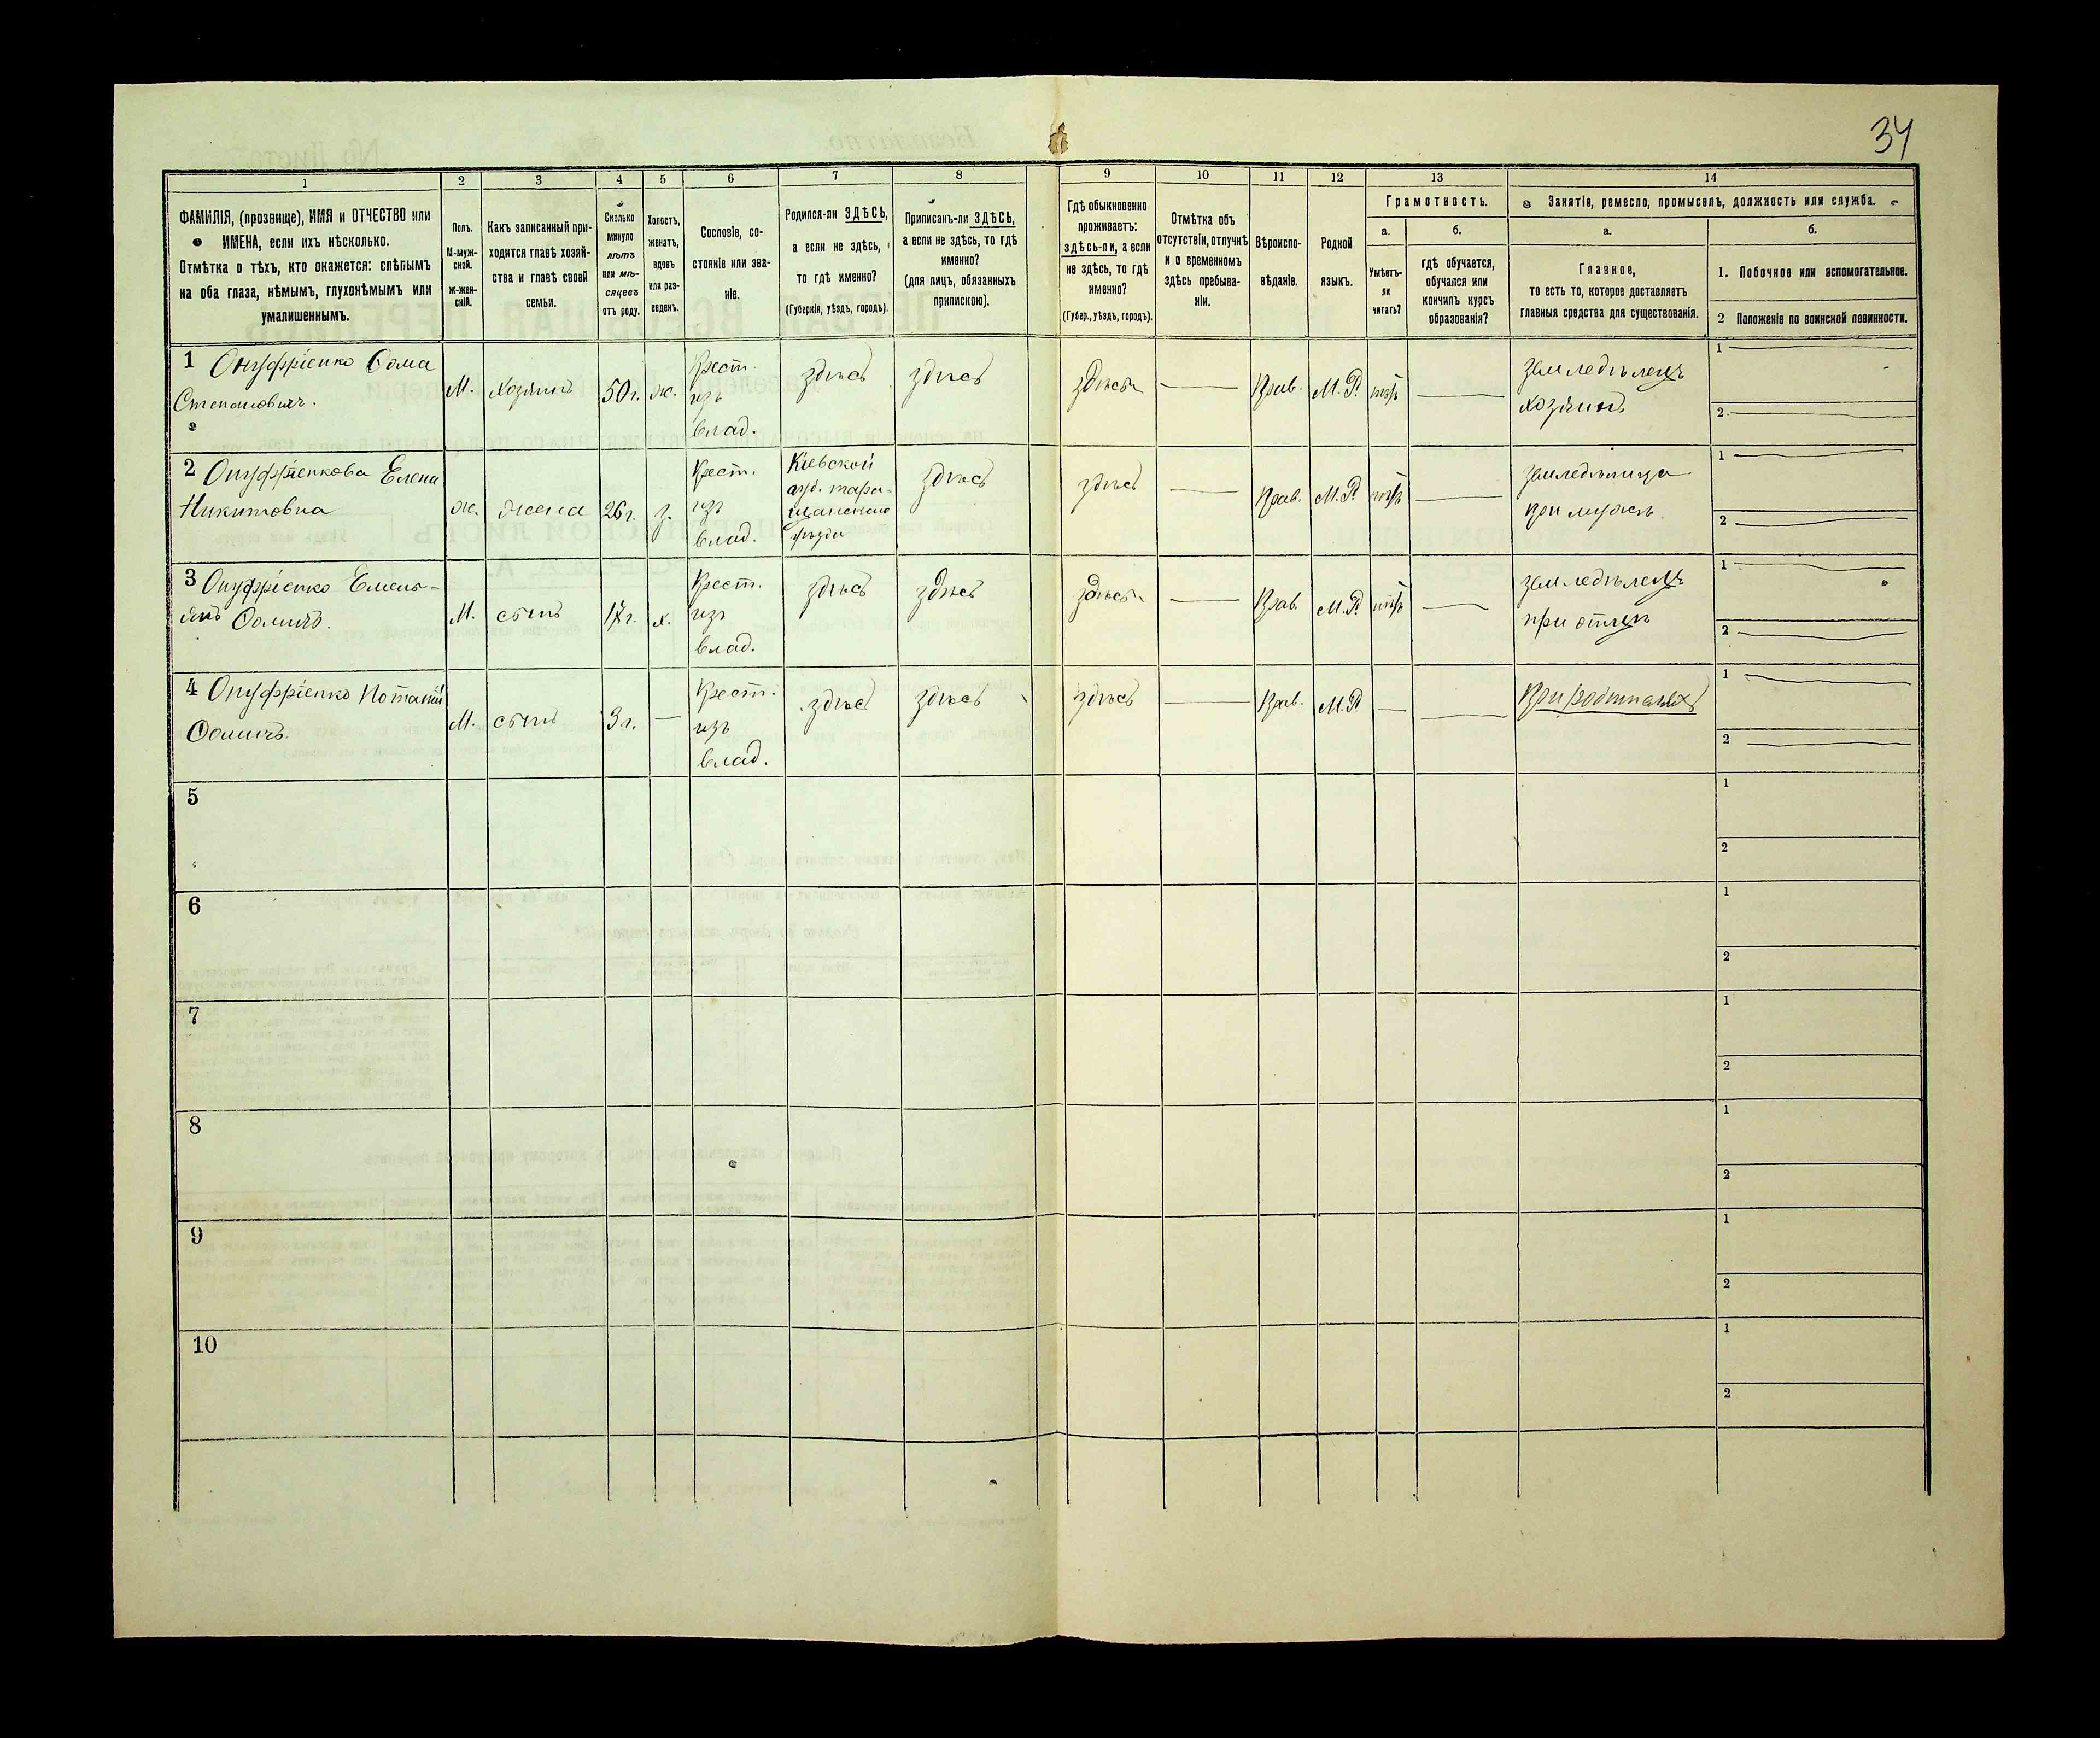 34
1 2 3 4 5 6 7 8 9 10 11 12 13 14
ФАМИЛІЯ, (прозвище), ИМЯ и ОТЧЕСТВО или
ИМЕНА, если ихъ нѣсколько.
Отмѣтка о тѣхъ, кто окажется: слѣпымъ
на оба глаза, нѣмымъ, глухонѣмымъ или
умалишеннымъ.
Полъ.
М-муж-
ской.
ж-жен-
скій.
Какъ записанный при-
ходится главѣ хозяй-
ства и главѣ своей
семьи.
Сколько
минуло
лѣтъ
или мѣ-
сяцевъ
отъ роду.
Холостъ,
женатъ,
вдовъ
или раз-
веденъ.
Сословіе, со-
стояніе или зва-
ніе.
Родился-ли ЗДѢСЬ,
а если не здѣсь,
то гдѣ именно?
(Губернія, уѣздъ, городъ).
Приписанъ-ли ЗДѢСЬ,
а если не здѣсь, то гдѣ
именно?
(для лицъ, обязанныхъ
припискою).
Гдѣ обыкновенно
проживаетъ:
здѣсь-ли, а если
не здѣсь, то гдѣ
именно?
(Губер., уѣздъ, городъ).
Отмѣтка объ
отсутствіи, отлучкѣ
и о временномъ
здѣсь пребыва-
ніи.
Вѣроиспо-
вѣданіе.
Родной
языкъ.
Грамотность.
а.
Умѣетъ-
ли
читать?
б.
гдѣ обучается,
обучался или
кончилъ курсъ
образованія?
Занятіе, ремесло, промыселъ, должность или служба.
а.
Главное,
то есть то, которое доставляетъ
главныя средства для существованія.
б.
1. Побочное или вспомогательное.
2 Положеніе по воинской повинности.
1 Онуфріенко Ѳома
Степановичъ.
М. хозяинъ 50 г. ж.
Крест.
изъ
влад.
здѣсь здѣсь здѣсь — Прав. М. Р. нѣтъ —
земледѣлецъ
хозяинъ
1 —
2 —
2 Онуфріенкова Елена
Никитовна
ж. жена 26 г. з.
Крест.
изъ
влад.
Кіевской
губ. тара-
щанскаго
уѣзда
здѣсь здѣсь — Прав. М. Р. нѣтъ —
земледѣлица
при мужѣ
1 —
2 —
3 Онуфріенко Емель-
янъ Ѳомичъ.
М. сынъ 17 г. х.
Крест.
изъ
влад.
здѣсь здѣсь здѣсь — Прав. М. Р. нѣтъ —
земледѣлецъ
при отцѣ
1 —
2 —
4 Онуфріенко Потапій
Ѳомичъ.
М. сынъ 3 г. —
Крест.
изъ
влад.
здѣсь здѣсь здѣсь Прав. М. Р. — —
При родителяхъ
1 —
2 —
5
1
2
6
1
2
7
1
2
8
1
2
9
1
2
10
1
2